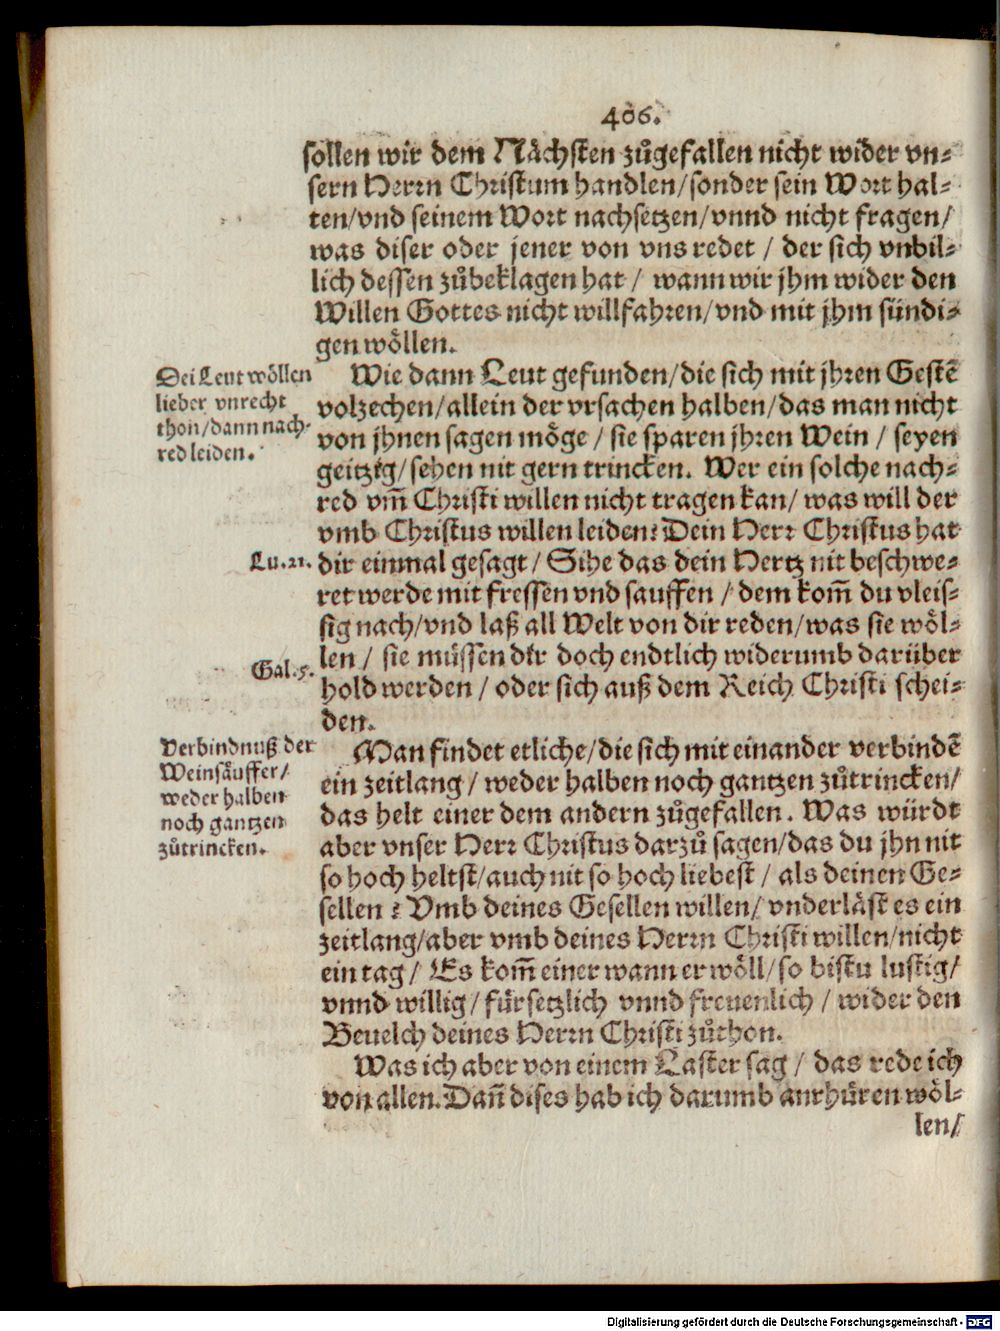 406.
sollen wir dem Nächsten zůgefallen nicht wider vn-
sern Herrn Christum handlen/sonder sein Wort hal-
ten/vnd seinem Wort nachsetzen/vnnd nicht fragen/
was diser oder jener von vns redet / der sich vnbil-
lich dessen zůbeklagen hat / wann wir jhm wider den
Willen Gottes nicht willfahren/vnd mit jhm sündi-
gen wöllen.
Dei Leut wöllen
lieber vnrecht
thon/dann nach-
red leiden.
Wie dann Leut gefunden/die sich mit jhren Gestē
volzechen/allein der vrsachen halben/das man nicht
von jhnen sagen möge / sie sparen jhren Wein / seyen
geitzig/sehen nit gern trincken. Wer ein solche nach-
red vm̃ Christi willen nicht tragen kan/ was will der
vmb Christus willen leiden? Dein Herr Christus hat
Lu.21.
dir einmal gesagt / Sihe das dein Hertz nit beschwe-
ret werde mit fressen vnd sauffen / dem kom̃ du vleis-
sig nach/vnd laß all Welt von dir reden/was sie wöl-
len / sie müssen dir doch endtlich widerumb darüber
Gal.5.
hold werden / oder sich auß dem Reich Christi schei-
den.
Verbindnuß der
Weinsäuffer/
weder halben
noch gantzen
zůtrincken.
Man findet etliche/die sich mit einander verbindē
ein zeitlang / weder halben noch gantzen zůtrincken/
das helt einer dem andern zůgefallen. Was würdt
aber vnser Herr Christus darzů sagen/das du jhn nit
so hoch heltst/auch nit so hoch liebest / als deinen Ge-
sellen ? Vmb deines Gesellen willen/ vnderläst es ein
zeitlang/aber vmb deines Herrn Christi willen/nicht
ein tag / Es kom̃ einer wann er wöll/so bistu lustig/
vnnd willig / fürsetzlich vnnd freuenlich / wider den
Beuelch deines Herrn Christi zůthon.
Was ich aber von einem Laster sag / das rede ich
von allen. Dañ dises hab ich darumb anrhüren wöl-
len/
Digitalisierung gefördert durch die Deutsche Forschungsgemeinschaft - DFG